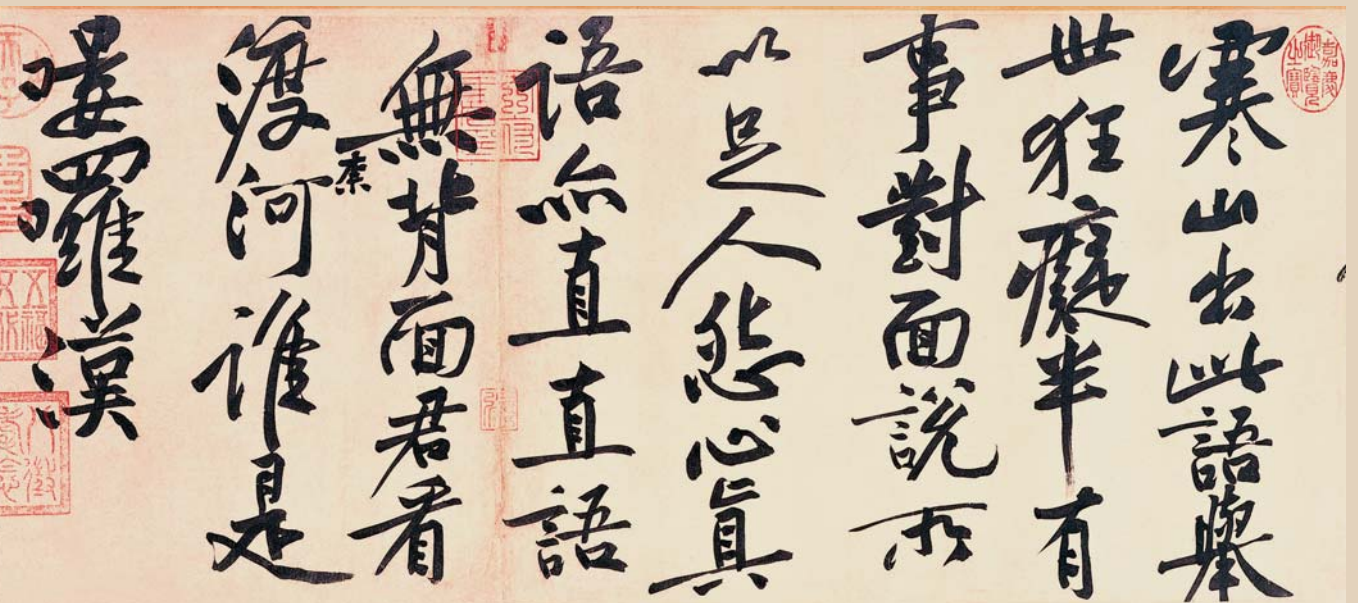 嘉慶御覽之寶
寒山出此語舉
世狂癡半有
事對面說所
以足人怨心真
語亦直直語
無背面君看
渡柰河誰是
嘍囉漢